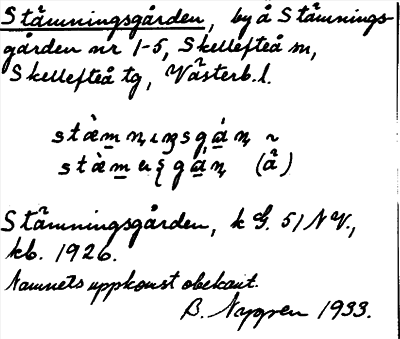 Stämningsgården, by å Stämnings-
gården nr 1-5, Skellefteå sn,
Skellefteå tg, Västerb. l.
(å)
Stämningsgården, k G. 51 NV.,
kb. 1926.
Namnets uppkomst obekant.
B. Nygren 1933.